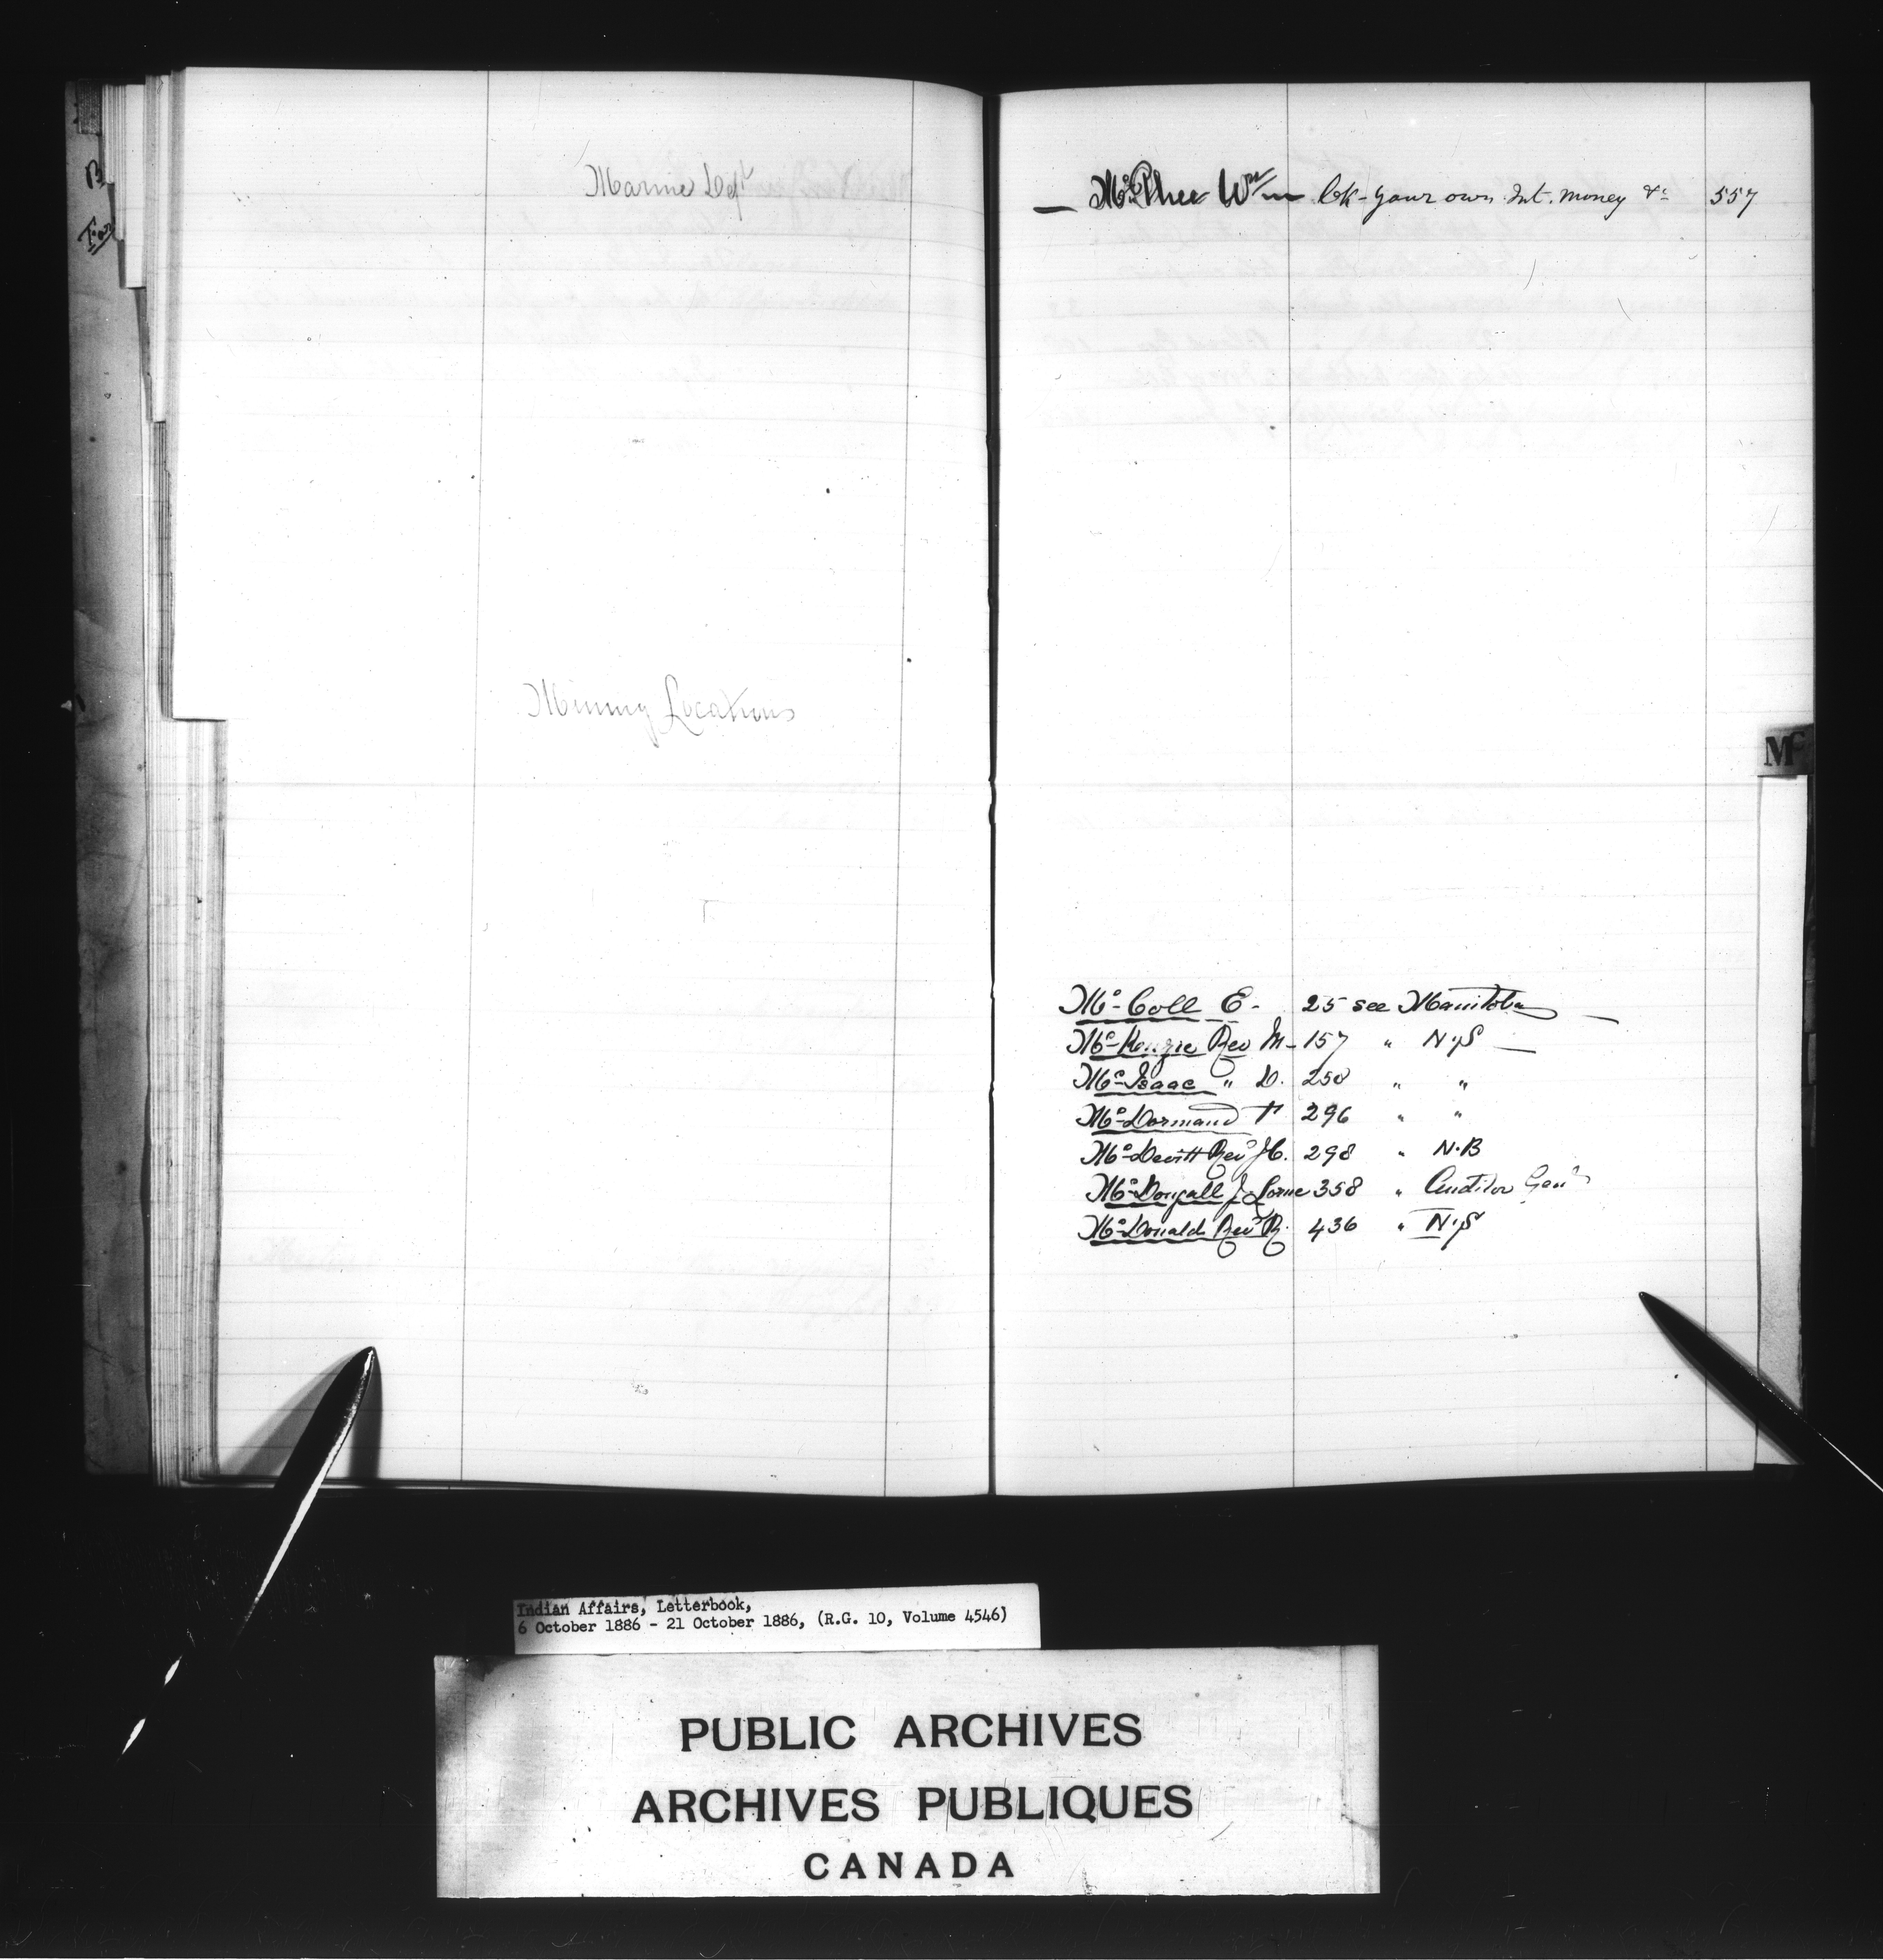 B
Marine Dept
Mining Locations
McPhee Wm Ck - your own Int. money &c 557
Mc
McColl E - 25 see Manitoba
McKenzie Rev M - 157 " N.S
McIsaac " D. 258 " "
McDormand 296 " "
McDevitt Revd J.C. 298 " N.B
McDougall J. Lorne 358 " Auditor Genl
McDonald Revd R. 436 " N.S
Indian Affairs, Letterbook,
6 October 1886 - 21 October 1886, (R.G. 10, Volume 4546)
PUBLIC ARCHIVES
ARCHIVES PUBLIQUES
CANADA